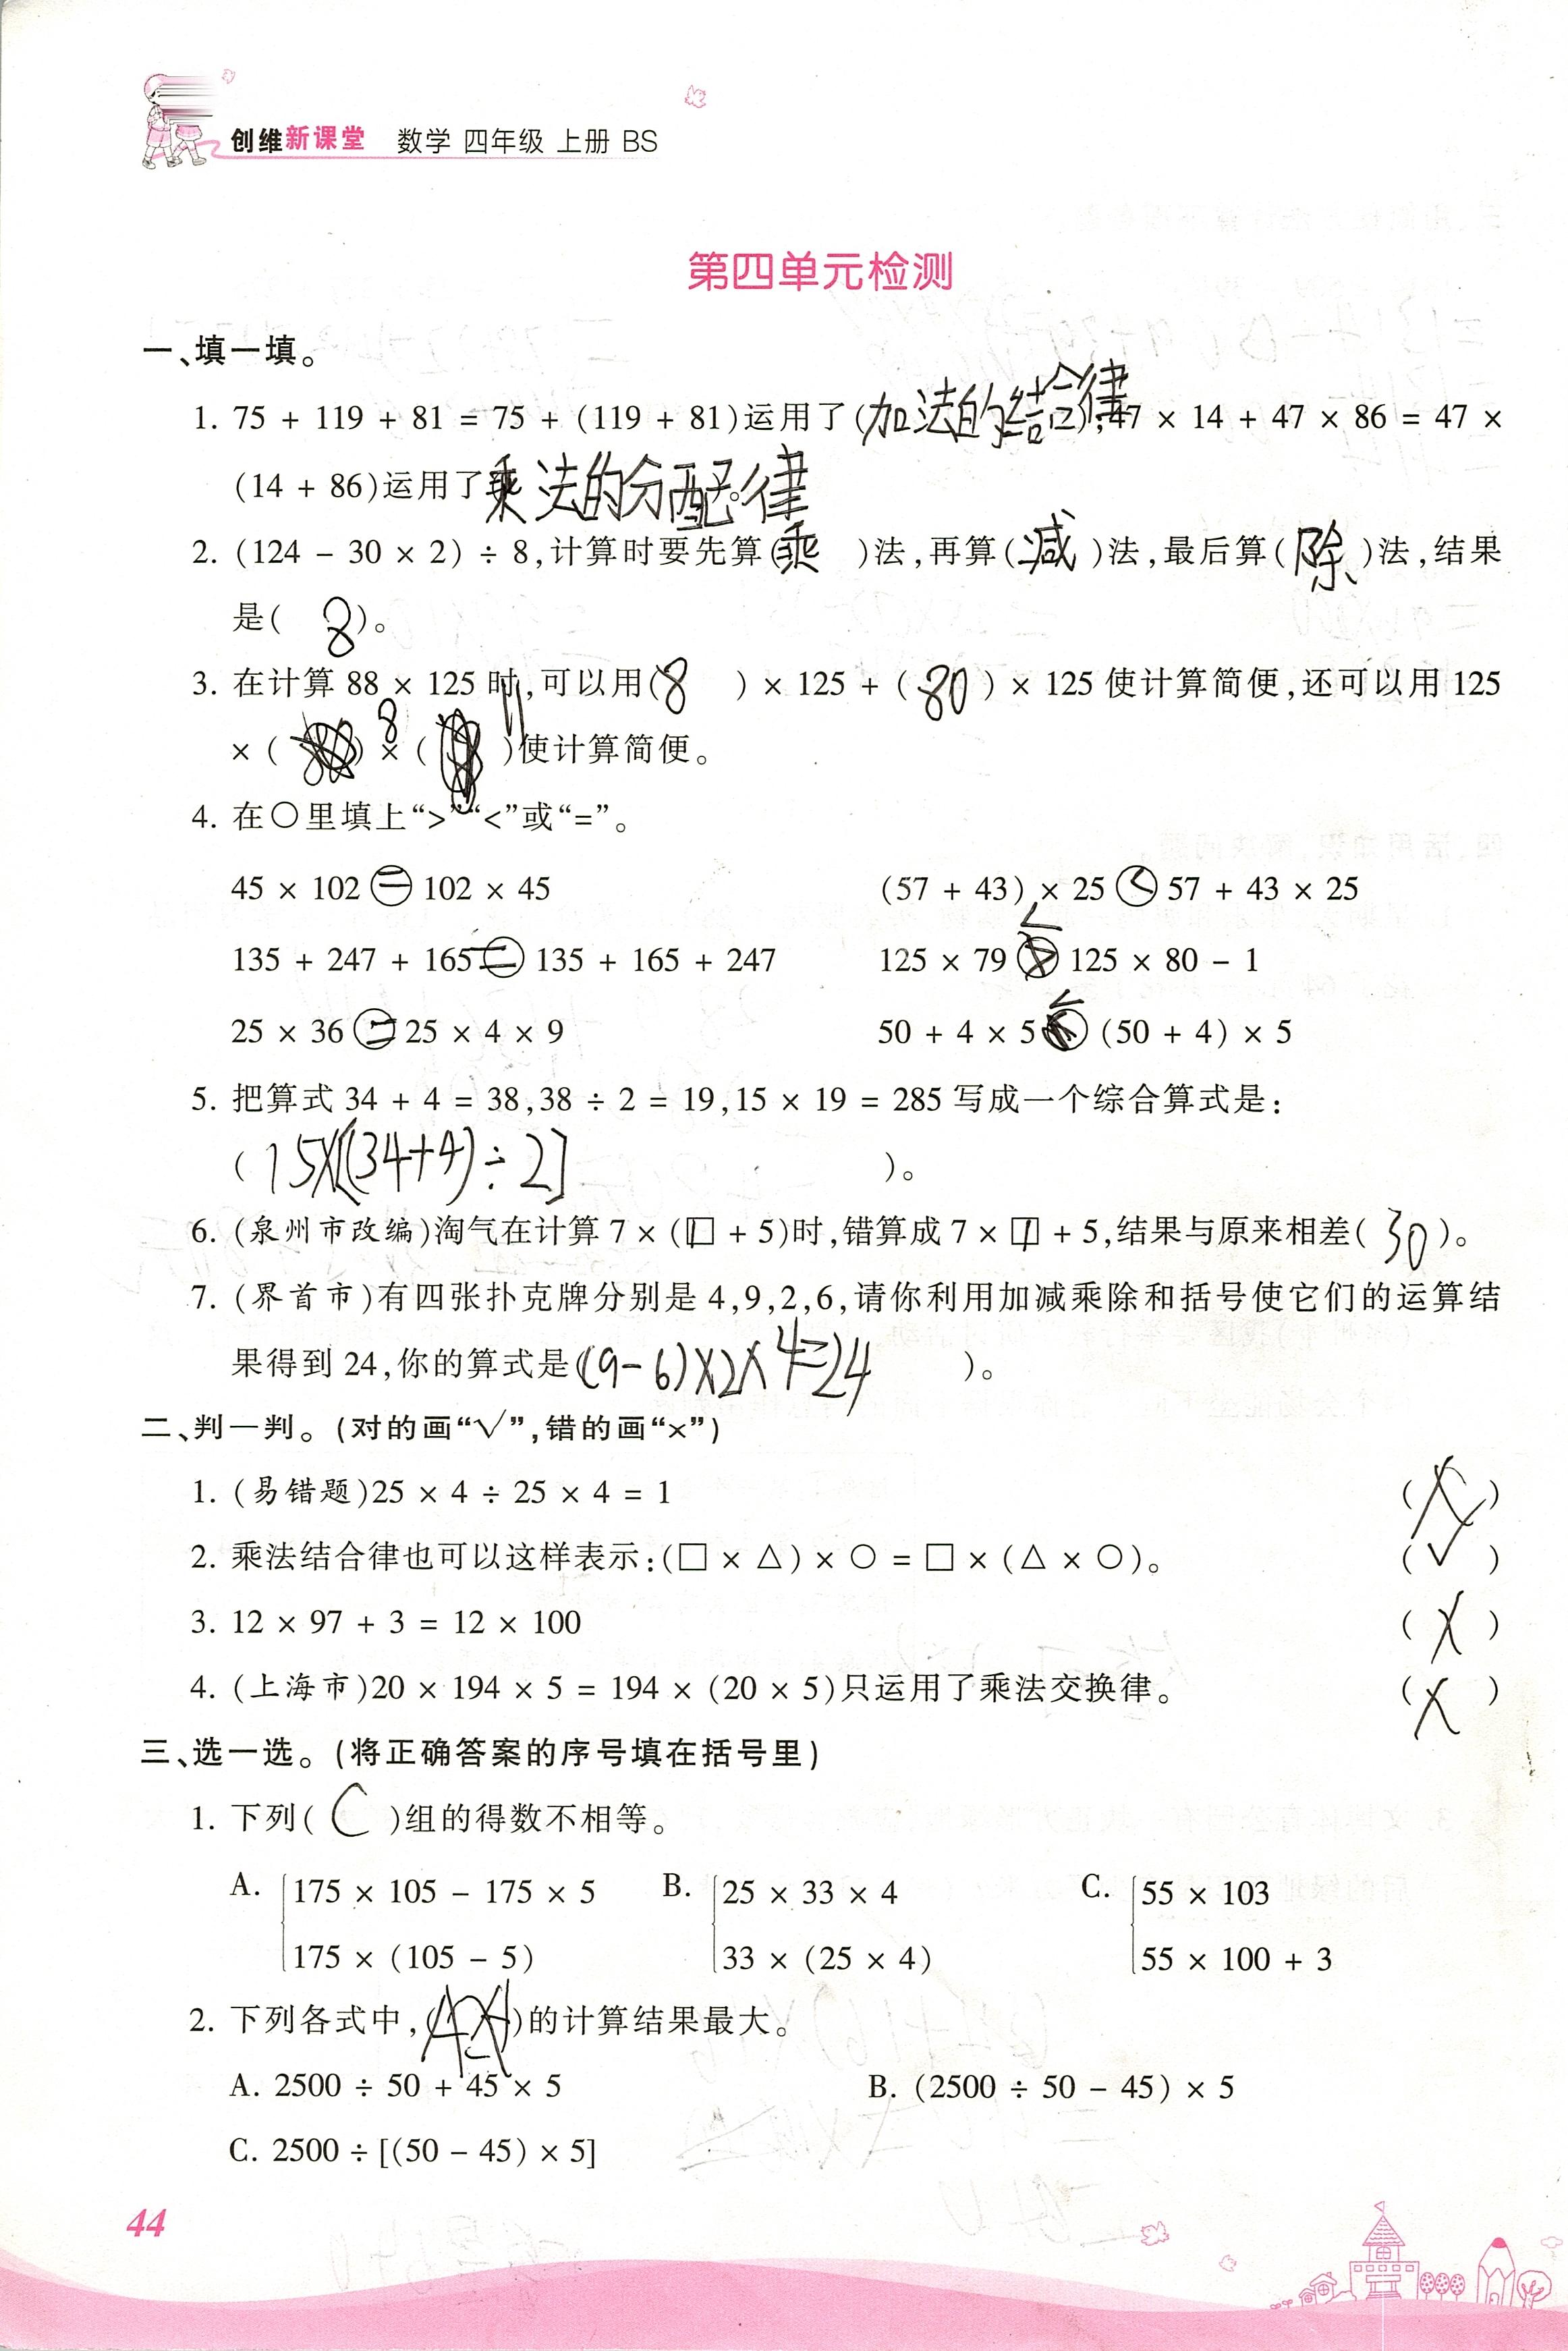 创维新课堂 数学 四年级 上册 BS
第四单元检测
一、填一填。
1. 75 + 119 + 81 = 75 + (119 + 81)运用了(加法的结合律),47 × 14 + 47 × 86 = 47 ×
(14 + 86)运用了乘法的分配律。
2. (124 - 30 × 2) ÷ 8,计算时要先算(乘)法,再算(减)法,最后算(除)法,结果
是( 8 )。
3. 在计算 88 × 125 时,可以用(8 ) × 125 + ( 80 ) × 125 使计算简便,还可以用 125
× ( ) 8 × ( 11 )使计算简便。
4. 在○里填上“>”“<”或“=”。
45 × 102 = 102 × 45 (57 + 43) × 25 < 57 + 43 × 25
135 + 247 + 165 = 135 + 165 + 247 125 × 79 < 125 × 80 - 1
25 × 36 = 25 × 4 × 9 50 + 4 × 5 < (50 + 4) × 5
5. 把算式 34 + 4 = 38,38 ÷ 2 = 19,15 × 19 = 285 写成一个综合算式是:
( 15×[(34+4)÷2] )。
6. (泉州市改编)淘气在计算 7 × (□ + 5)时,错算成 7 × □ + 5,结果与原来相差( 30 )。
7. (界首市)有四张扑克牌分别是 4,9,2,6,请你利用加减乘除和括号使它们的运算结
果得到 24,你的算式是((9-6)×2×4=24 )。
二、判一判。(对的画“√”,错的画“×”)
1. (易错题)25 × 4 ÷ 25 × 4 = 1 ( × )
2. 乘法结合律也可以这样表示:(□ × △) × ○ = □ × (△ × ○)。 ( √ )
3. 12 × 97 + 3 = 12 × 100 ( × )
4. (上海市)20 × 194 × 5 = 194 × (20 × 5)只运用了乘法交换律。 ( × )
三、选一选。(将正确答案的序号填在括号里)
1. 下列( C )组的得数不相等。
A. 175 × 105 - 175 × 5 B. 25 × 33 × 4 C. 55 × 103
175 × (105 - 5) 33 × (25 × 4) 55 × 100 + 3
2. 下列各式中,( A )的计算结果最大。
A. 2500 ÷ 50 + 45 × 5 B. (2500 ÷ 50 - 45) × 5
C. 2500 ÷ [(50 - 45) × 5]
44